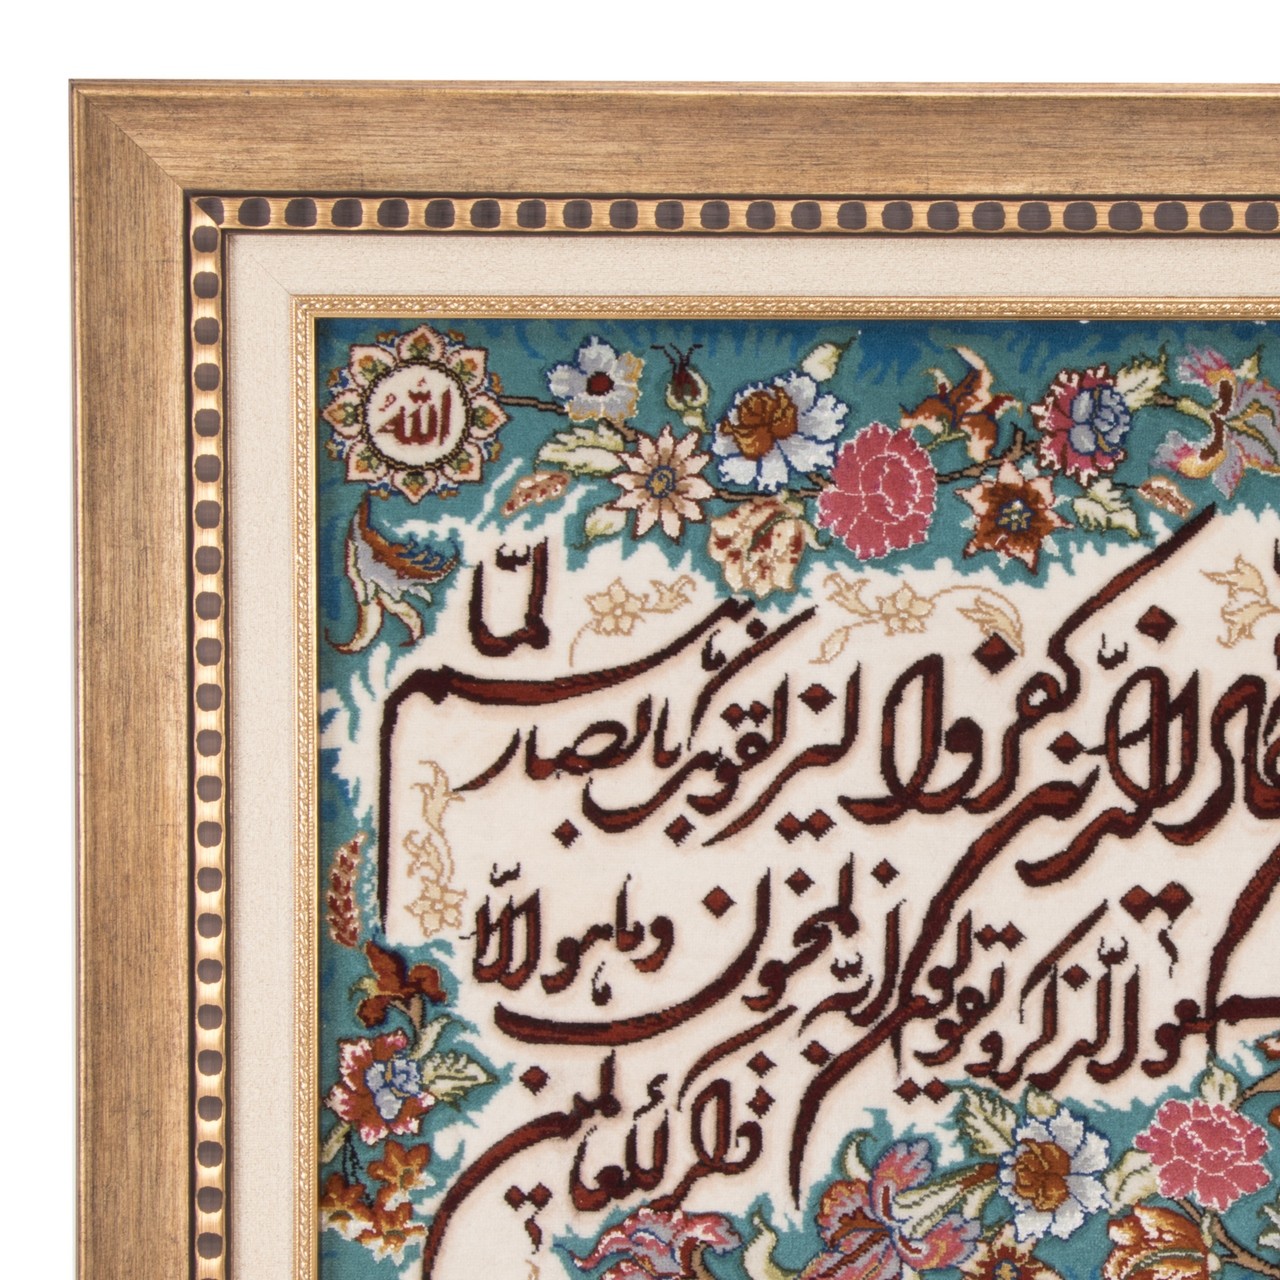 الله
الذین کفروا لیزلقونک بابصارهم لما
سمعوا الذکر و یقولون انه لمجنون وما هو الا
ذکر للعالمین